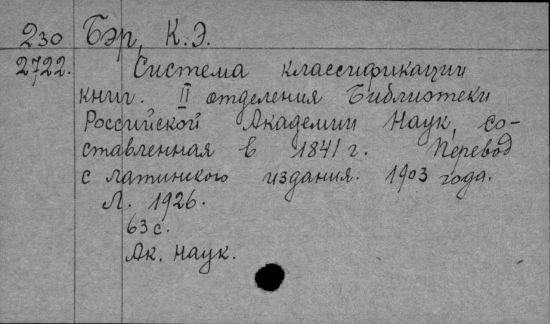 230 Бэр, К.Э.
2722. Система классификации
книг. II отделения Библиотеки
Российской Академии Наук, со-
ставленная в 1841 г. Перевод
с латинского издания. 1903 года.
Л. 1926.
63 с.
Ак. наук.